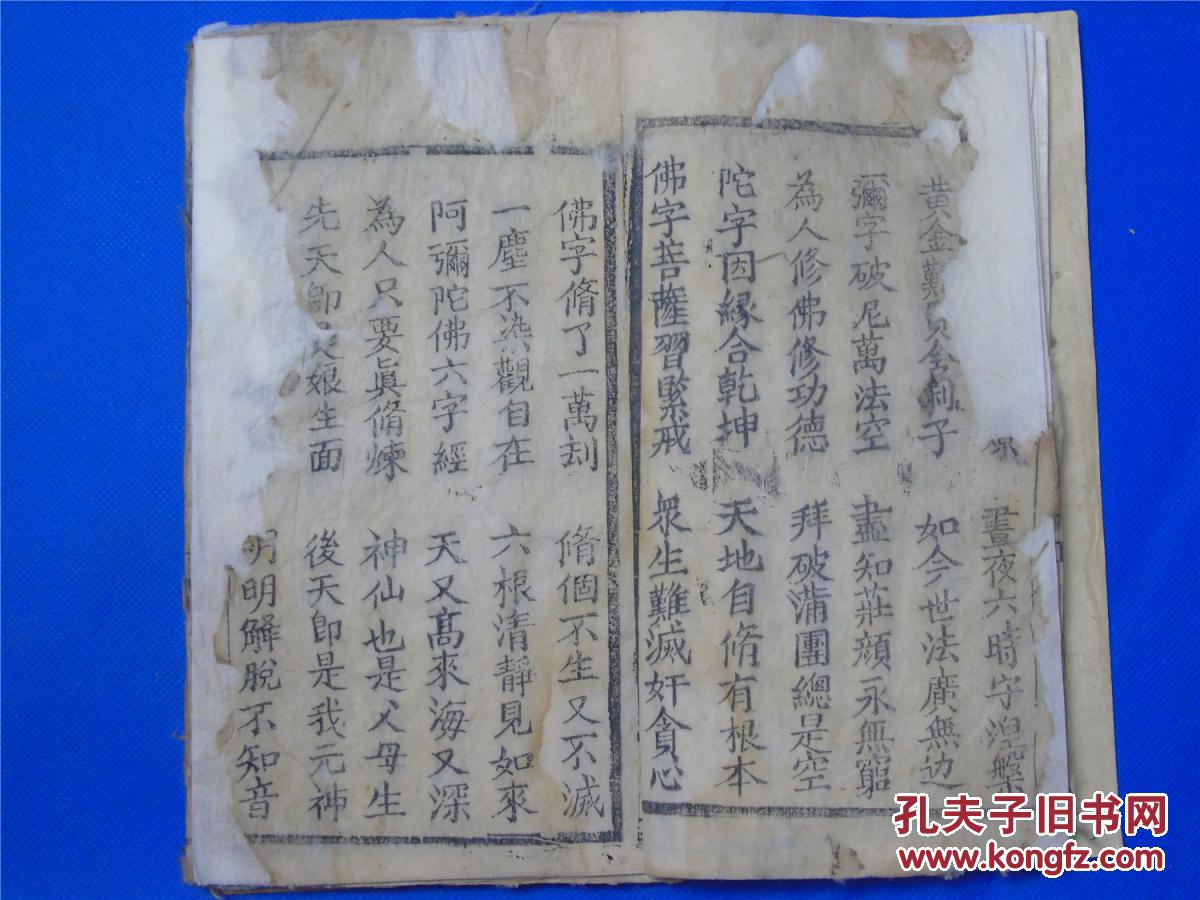 晝夜六時守湼槃
黄金難 舍利子 如今世法廣無边
彌字破尼萬法空 盡知莊顔永無窮
為人修佛修功德 拜破蒲團總是空
陀字因緣合乾坤 天地自脩有根本
佛字菩薩習緊戒 衆生難滅奸貪心
佛字脩了一萬刼 脩個不生又不滅
一塵不染觀自在 六根清靜見如來
阿彌陀佛六字經 天又髙來海又深
為人只要眞脩煉 神仙也是父母生
先天卽 娘生面 後天卽是我元神
明明解脫不知音
孔夫子旧书网
www.kongfz.com